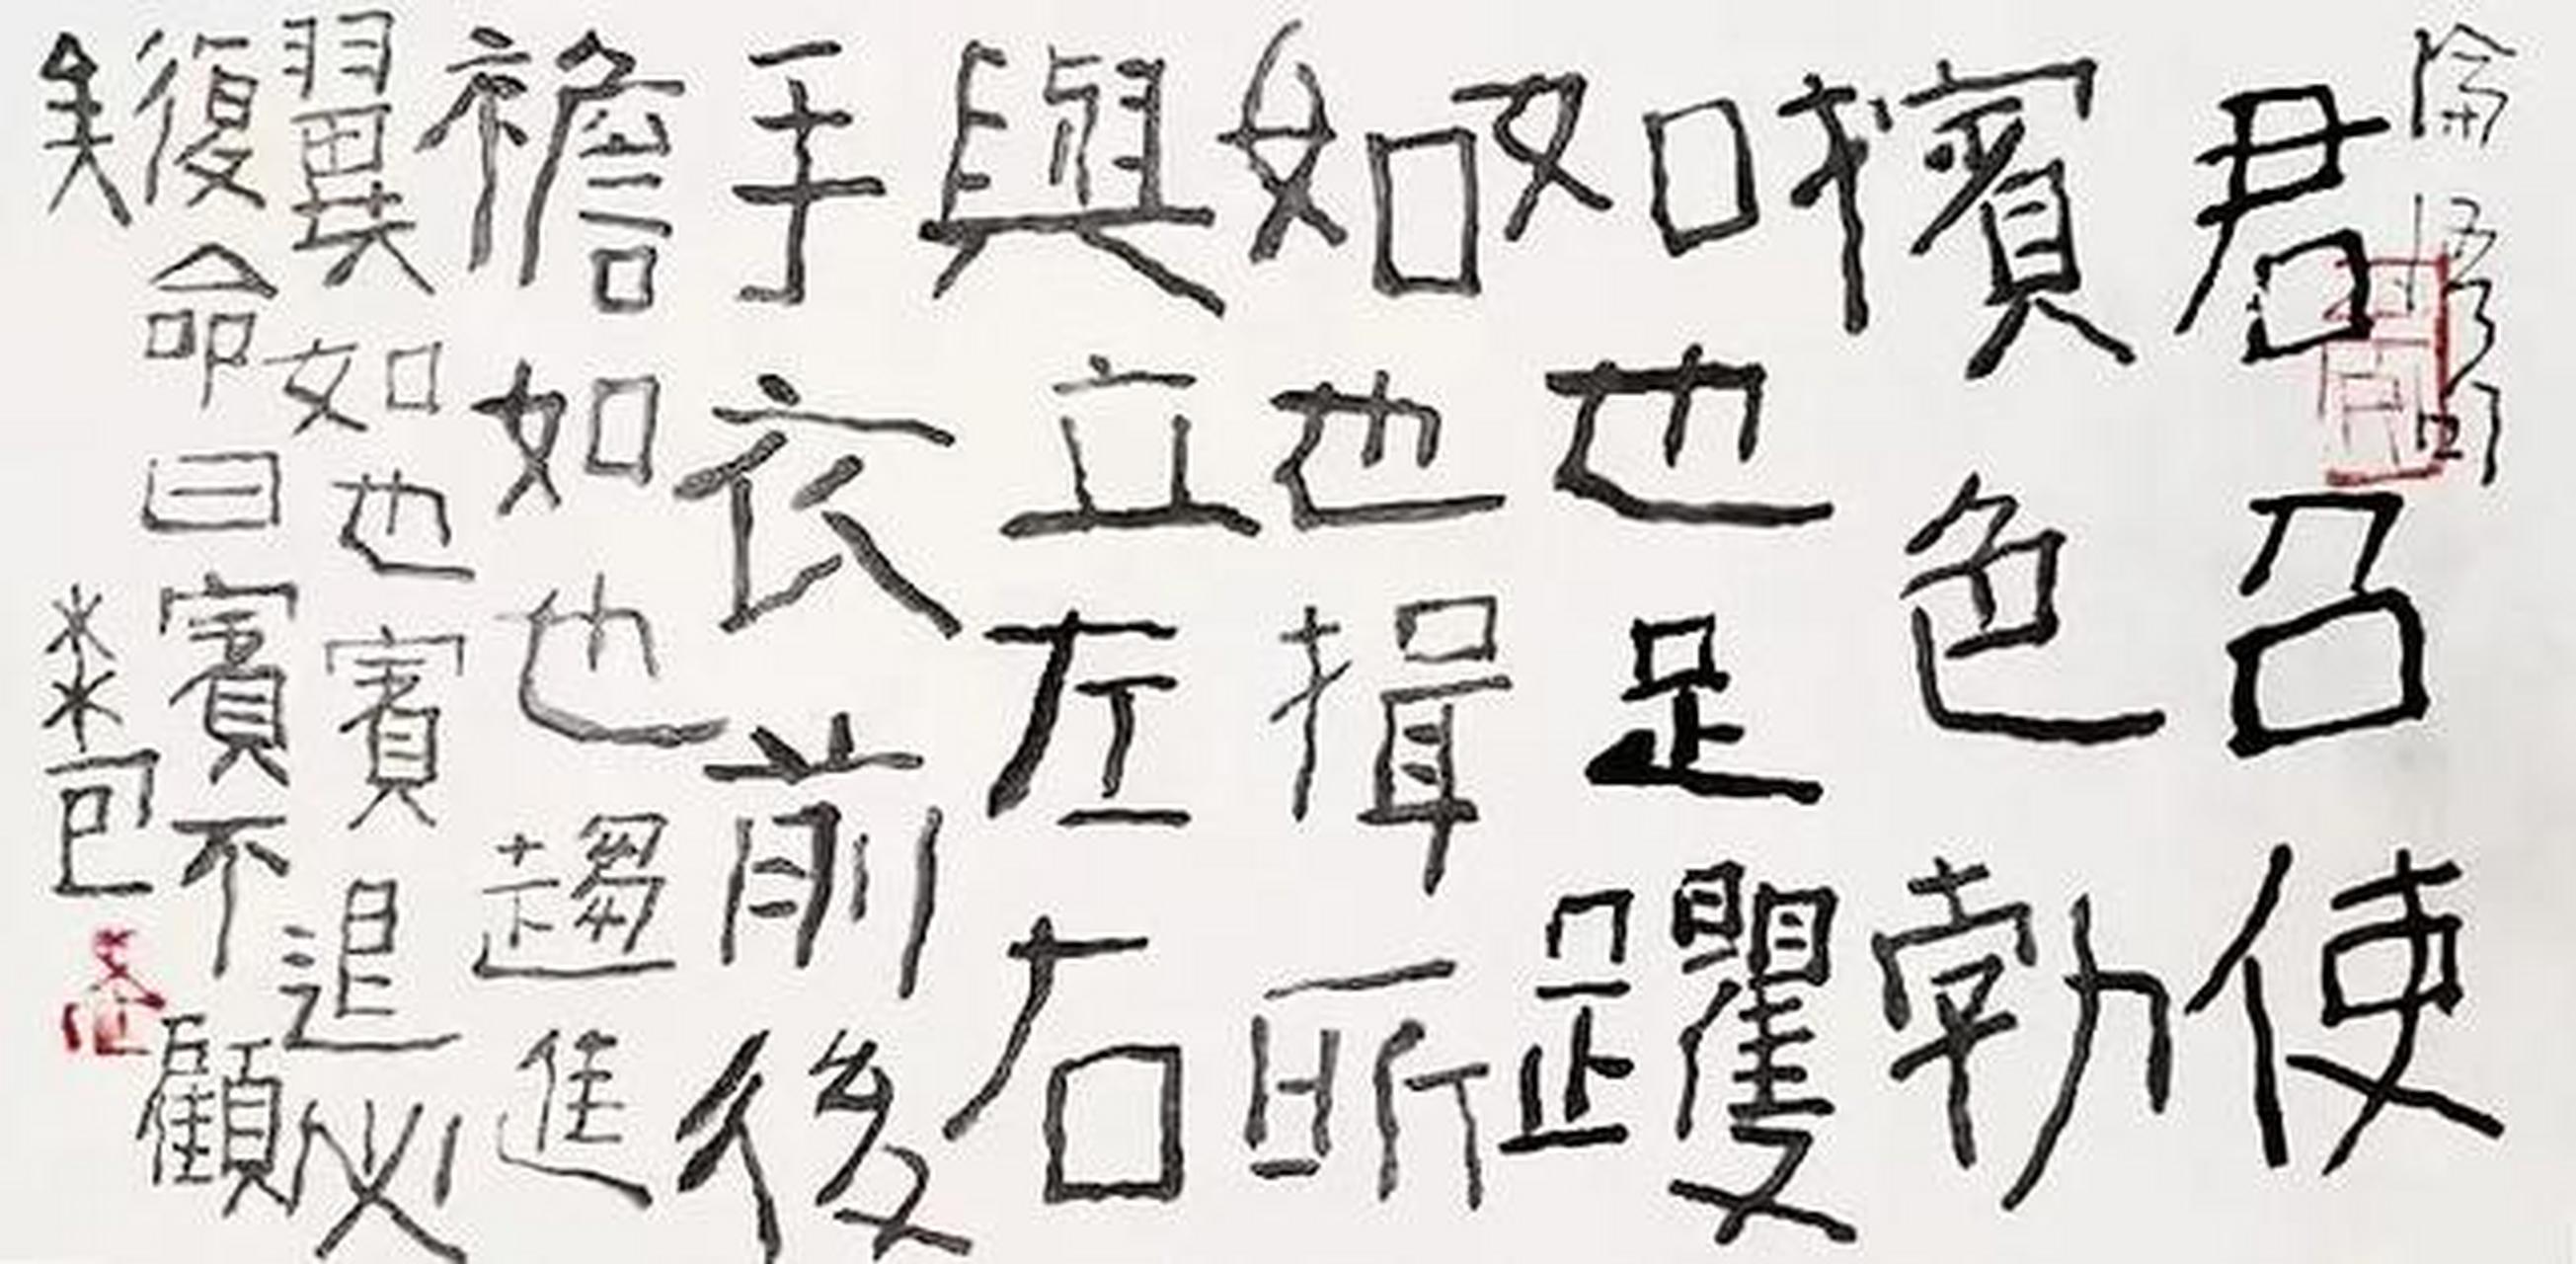 君召使
擯色勃
如也足躩
如也揖所
與立左右
手衣前後
襜如也趨進
翼如也賓退必
復命曰賓不顧
矣